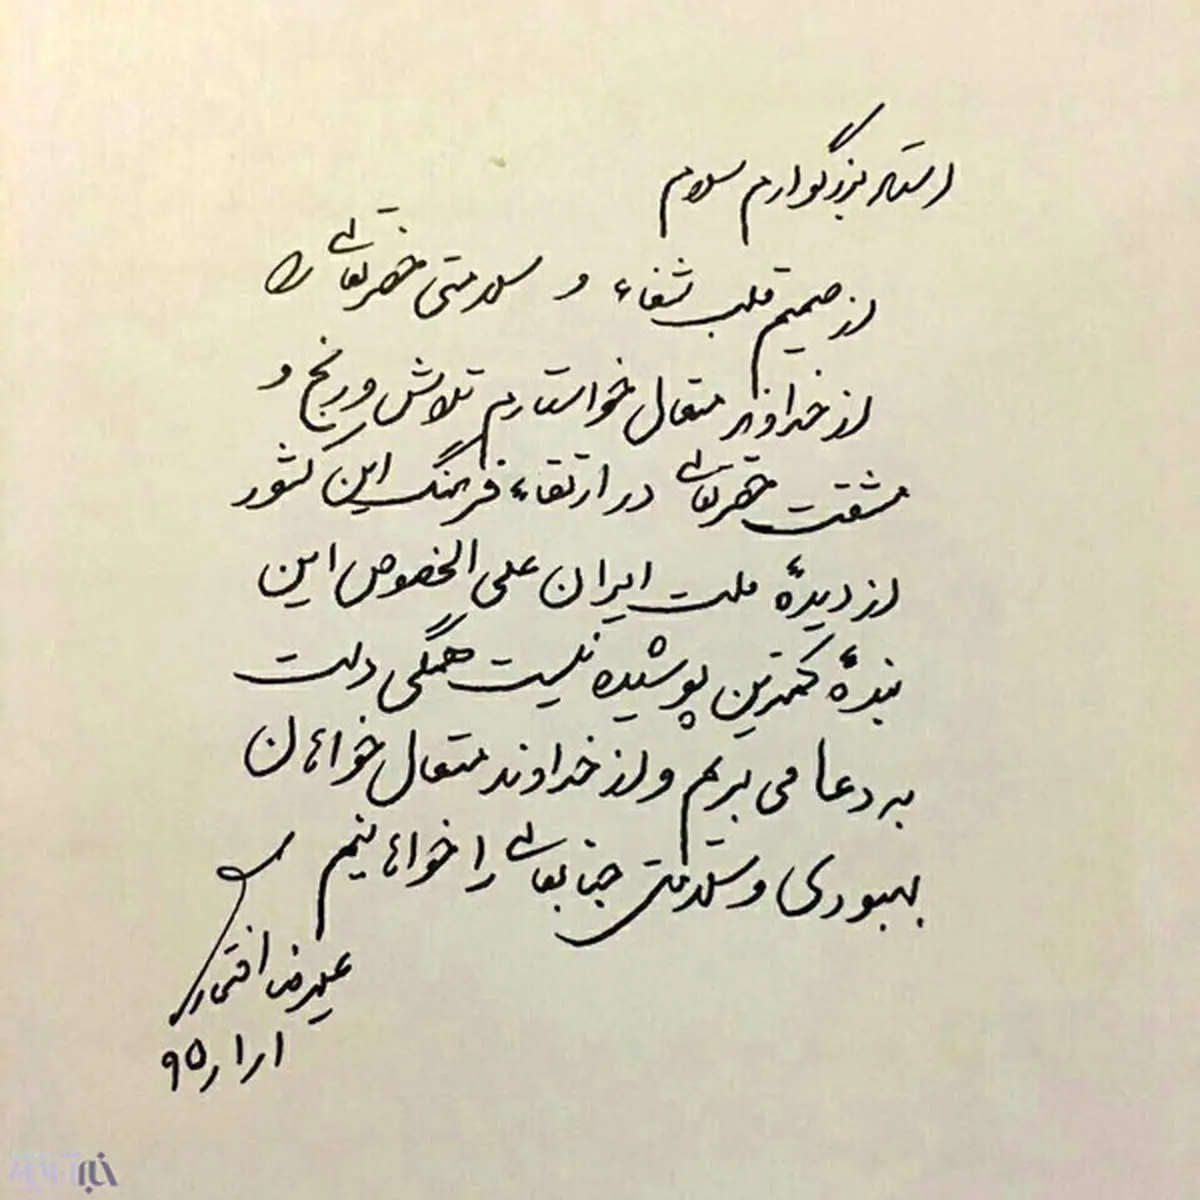 استاد بزرگوارم سلام
از صمیم قلب شفاء و سلامتی حضرتعالی را
از خداوند متعال خواستارم تلاش و رنج و
مشقت حضرتعالی در ارتقاء فرهنگ این کشور
از دیدهٔ ملت ایران علی الخصوص این
بندهٔ کمترین پوشیده نیست همگی دست
به دعا می بریم و از خداوند متعال خواهان
بهبودی و سلامتی جنابعالی را خواهانیم
علیرضا افتخاری
۹۵/۱/۱
خبرآنلاین